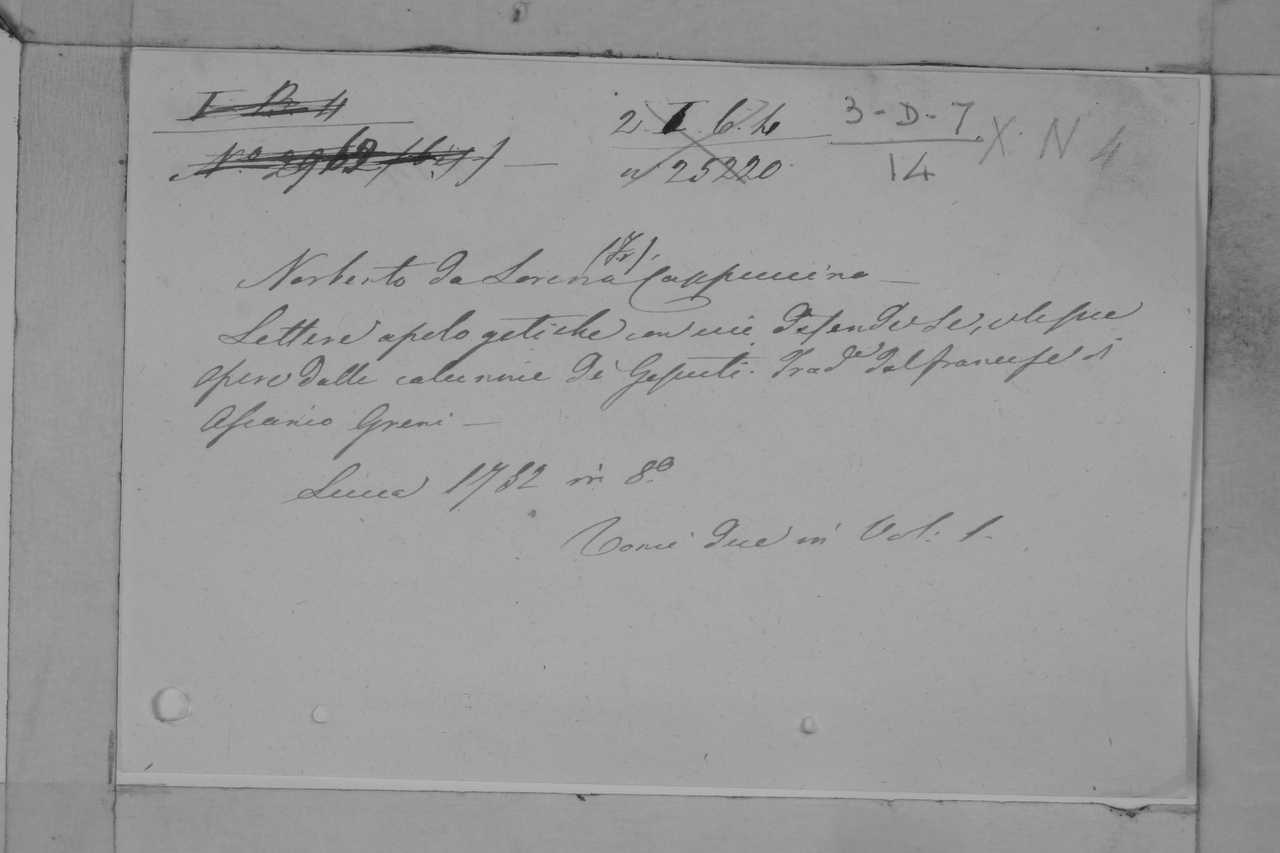 I B 4
2 I 6. 4 3-D-7 X. N 4
n 25220 14
(Fr).
Norberto da Lorena Cappuccino —
Lettere apologetiche con cui difende se, e le sue
opere dalle calunnie de' Gesuiti. Trad.e dal francese di
Ascanio Greni —
Lucca 1752 in 8.o
Tomi due in Vol: 1.